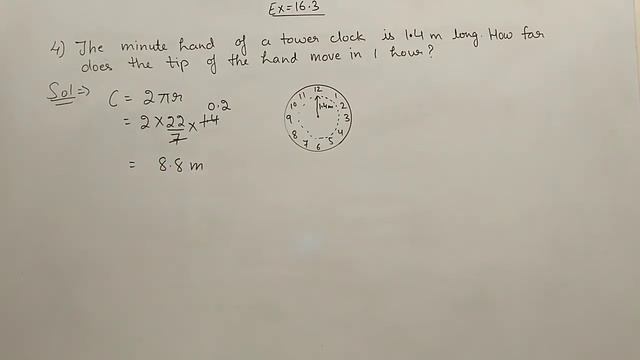 Ex=16.3
4) The minute hand of a tower clock is 1.4 m long. How far
does the tip of the hand move in 1 hour?
Sol⇒
C = 2πr
0.2
= 2 × 22/7 × 1.4
= 8.8 m
12
11 1
10 2
1.4m
9 3
8 4
7 5
6